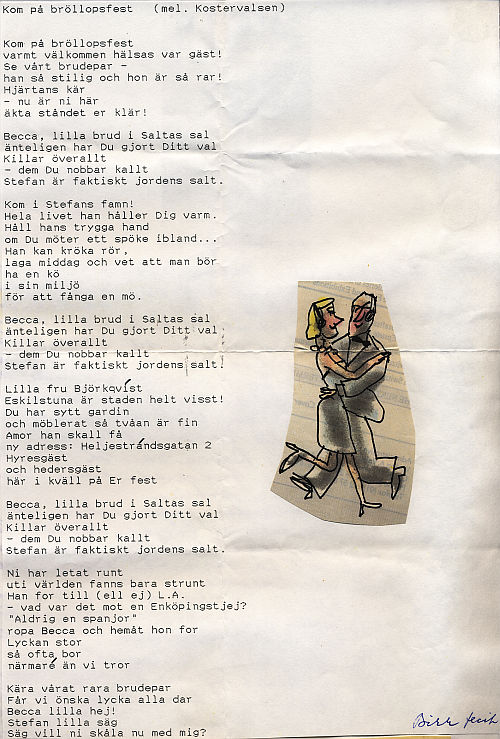 Kom på bröllopsfest (mel. Kostervalsen)
Kom på bröllopsfest
varmt välkommen hälsas var gäst!
Se vårt brudepar -
han så stilig och hon är så rar!
Hjärtans kär
- nu är ni här
äkta ståndet er klär!
Becca, lilla brud i Saltas sal
änteligen har Du gjort Ditt val
Killar överallt
- dem Du nobbar kallt
Stefan är faktiskt jordens salt.
Kom i Stefans famn!
Hela livet han håller Dig varm.
Håll hans trygga hand
om Du möter ett spöke ibland...
Han kan kröka rör,
laga middag och vet att man bör
ha en kö
i sin miljö
för att fånga en mö.
Becca, lilla brud i Saltas sal
änteligen har Du gjort Ditt val
Killar överallt
- dem Du nobbar kallt
Stefan är faktiskt jordens salt.
Lilla fru Björkqvist
Eskilstuna är staden helt visst!
Du har sytt gardin
och möblerat så tvåan är fin
Amor han skall få
ny adress: Heljestrandsgatan 2
Hyresgäst
och hedersgäst
här i kväll på Er fest
Becca, lilla brud i Saltas sal
änteligen har Du gjort Ditt val
Killar överallt
- dem Du nobbar kallt
Stefan är faktiskt jordens salt.
Ni har letat runt
uti världen fanns bara strunt
Han for till (ell ej) L.A.
- vad var det mot en Enköpingstjej?
"Aldrig en spanjor"
ropa Becca och hemåt hon for
Lyckan stor
så ofta bor
närmare än vi tror
Kära vårat rara brudepar
Får vi önska lycka alla dar
Becca lilla hej!
Stefan lilla säg
Säg vill ni skåla nu med mig?